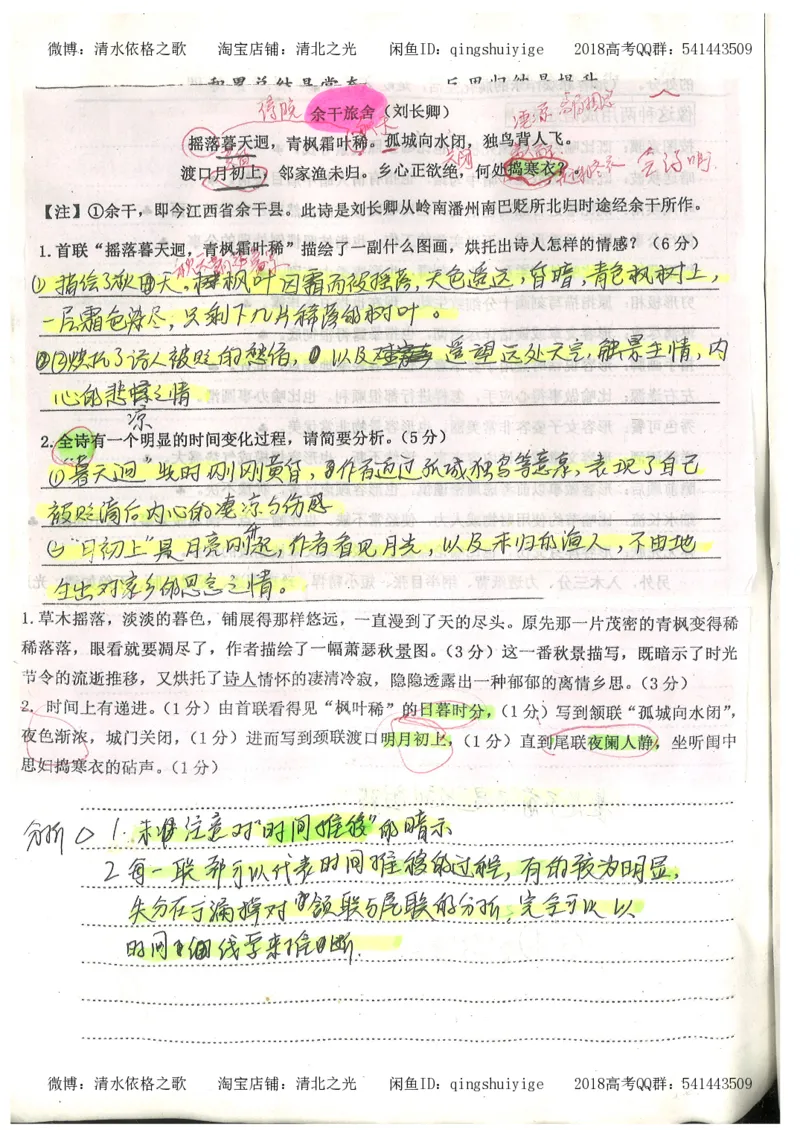 微博：清水依格之歌 淘宝店铺：清北之光 闲鱼ID：qingshuiyige 2018高考QQ群：541443509
余干旅舍（刘长卿）
摇落暮天迥，青枫霜叶稀。孤城向水闭，独鸟背人飞。
渡口月初上，邻家渔未归。乡心正欲绝，何处捣寒衣？
【注】①余干，即今江西省余干县。此诗是刘长卿从岭南潘州南巴贬所北归时途经余干所作。
1.首联“摇落暮天迥，青枫霜叶稀”描绘了一副什么图画，烘托出诗人怎样的情感？（6分）
①描绘了秋田天。枫叶因霜而没摇落，天色遥远，昏暗，青色枫树上，
一层霜色渐尽，只剩下几片稀落的树叶。
②烘托了诗人被贬的愁绪，以及遥望远处天空，触景生情，内
心的悲凉之情
2.全诗有一个明显的时间变化过程，请简要分析。（5分）
①“暮天迥”此时刚刚黄昏，作者通过孤城，独鸟等意象，表现了自己
被贬谪后内心的凄凉与伤感
②“月初上”是月亮刚升起，作者看见月光，以及未归的渔人，不由地
生出对家乡的思念之情。
1.草木摇落，淡淡的暮色，铺展得那样悠远，一直漫到了天的尽头。原先那一片茂密的青枫变得稀
稀落落，眼看就要凋尽了，作者描绘了一幅萧瑟秋景图。（3分）这一番秋景描写，既暗示了时光
节令的流逝推移，又烘托了诗人情怀的凄清冷寂，隐隐透露出一种郁郁的离情乡思。（3分）
2. 时间上有递进。（1分）由首联看得见“枫叶稀”的日暮时分，（1分）写到颔联“孤城向水闭”，
夜色渐浓，城门关闭，（1分）进而写到颈联渡口明月初上，（1分）直到尾联夜阑人静，坐听闺中
思妇捣寒衣的砧声。（1分）
分析 1.未注意对“时间推移”的暗示
2.每一联都可以代表时间推移的过程，有的较为明显，
失分在于漏掉对颔联与尾联的分析，完全可以以
时间细线索来推断.
微博：清水依格之歌 淘宝店铺：清北之光 闲鱼ID：qingshuiyige 2018高考QQ群：541443509